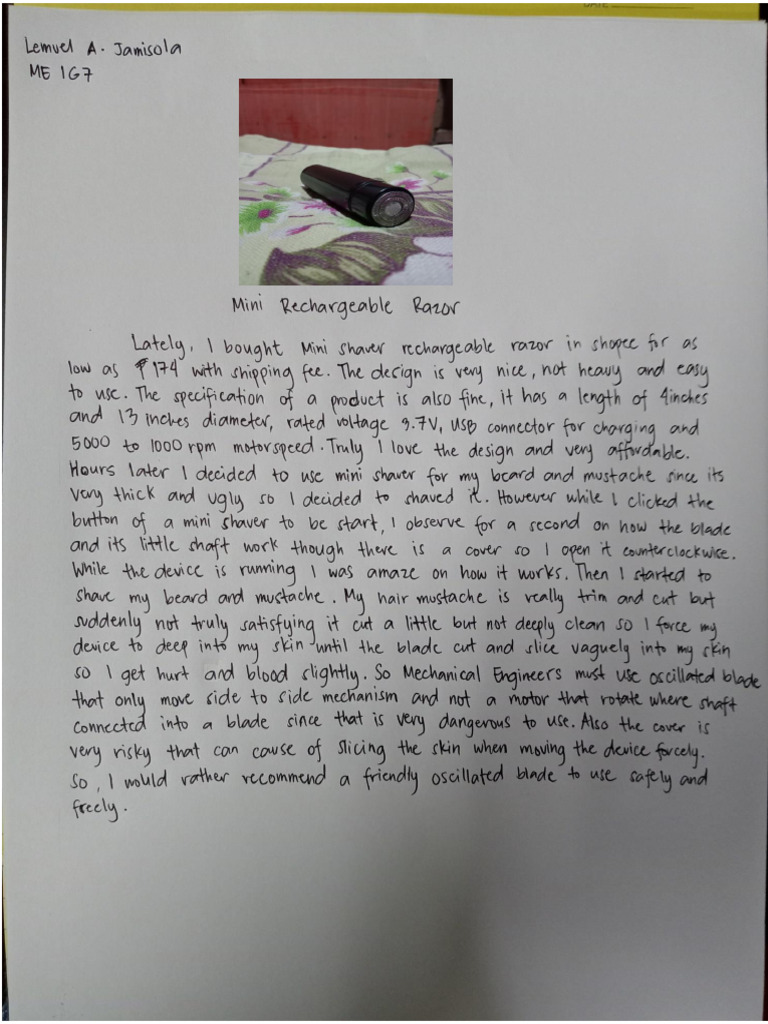 DATE
Lemuel A. Jamisola
ME 1G7
Mini Rechargeable Razor
Lately, I bought Mini shaver rechargeable razor in shopee for as
low as ₱174 with shipping fee. The design is very nice, not heavy and easy
to use. The specification of a product is also fine, it has a length of 4inches
and 13 inches diameter, rated voltage 3.7V, USB connector for charging and
5000 to 1000 rpm motorspeed. Truly I love the design and very affordable.
Hours later I decided to use mini shaver for my beard and mustache since its
very thick and ugly so I decided to shaved it. However while I clicked the
button of a mini shaver to be start, I observe for a second on how the blade
and its little shaft work though there is a cover so I open it counterclockwise.
While the device is running I was amaze on how it works. Then I started to
shave my beard and mustache. My hair mustache is really trim and cut but
suddenly not truly satisfying it cut a little but not deeply clean so I force my
device to deep into my skin until the blade cut and slice vaguely into my skin
so I get hurt and blood slightly. So Mechanical Engineers must use oscillated blade
that only move side to side mechanism and not a motor that rotate where shaft
connected into a blade since that is very dangerous to use. Also the cover is
very risky that can cause of slicing the skin when moving the device forcely.
So, I would rather recommend a friendly oscillated blade to use safely and
freely.